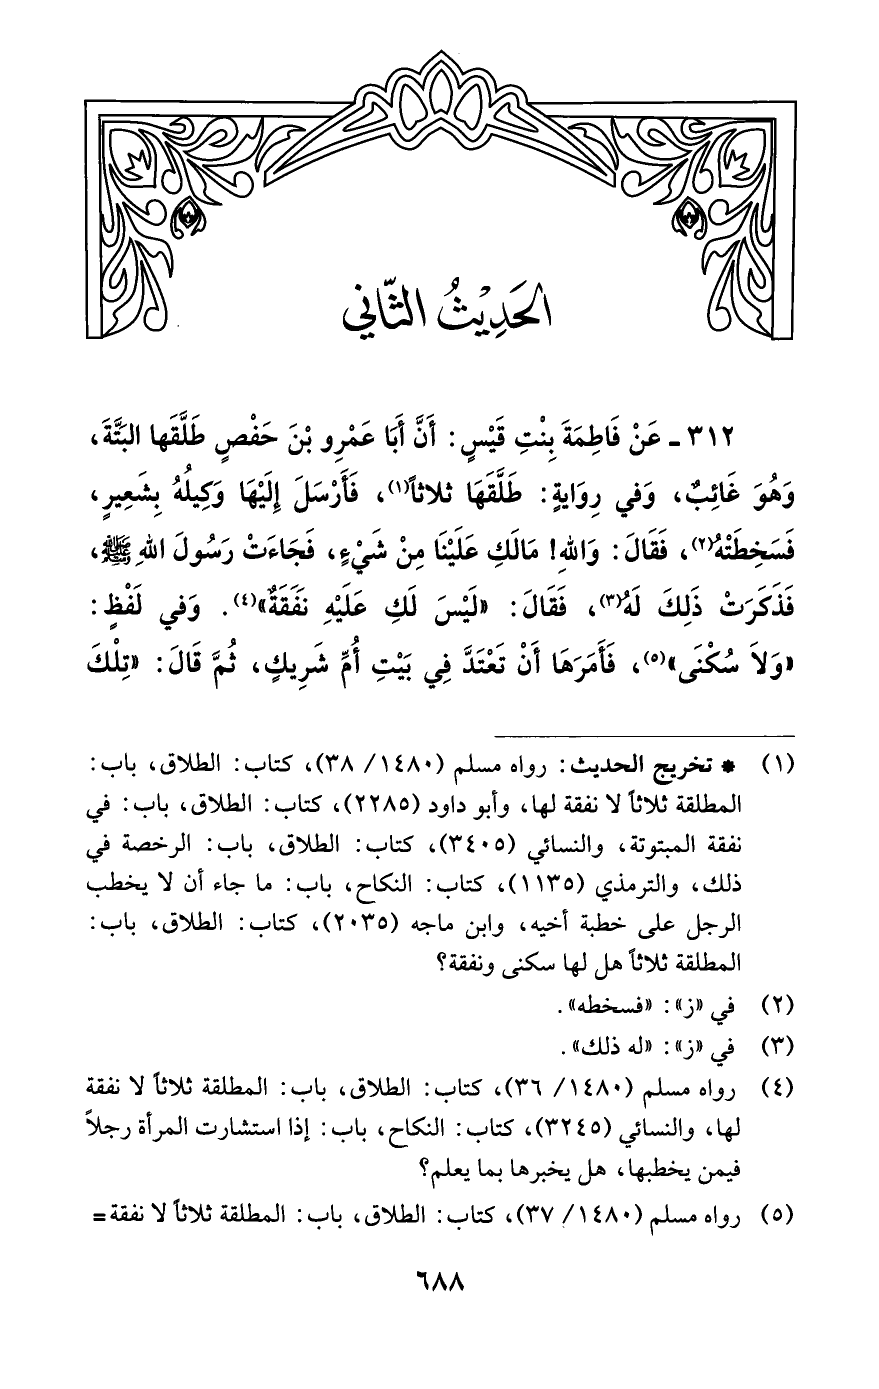 الحَدِيْثُ الثَّاني
٣١٢ ـ عَنْ فَاطِمَةَ بِنْتِ قَيْسٍ: أَنَّ أَبَا عَمْرِو بْنَ حَفْصٍ طَلَّقَها البَتَّةَ،
وَهُوَ غَائِبٌ، وَفي رِوَايةٍ: طَلَّقَهَا ثلاثاً(١)، فَأَرْسَلَ إِلَيْهَا وَكِيلُهُ بِشَعِيرٍ،
فَسَخِطَتْهُ(٢)، فَقَالَ: وَاللهِ! مَالَكِ عَلَيْنَا مِنْ شَيْءٍ، فَجَاءَتْ رَسُولَ اللهِ ﷺ،
فَذَكَرَتْ ذَلِكَ لَهُ(٣)، فَقَالَ: «لَيْسَ لَكِ عَلَيْهِ نَفَقَةٌ»(٤). وَفي لَفْظٍ:
«وَلاَ سُكْنَى»(٥)، فَأَمَرَهَا أَنْ تَعْتَدَّ فِي بَيْتِ أُمِّ شَرِيكٍ، ثُمَّ قَالَ: «تِلْكَ
(١) * تخريج الحديث: رواه مسلم (١٤٨٠/ ٣٨)، كتاب: الطلاق، باب:
المطلقة ثلاثاً لا نفقة لها، وأبو داود (٢٢٨٥)، كتاب: الطلاق، باب: في
نفقة المبتوتة، والنسائي (٣٤٠٥)، كتاب: الطلاق، باب: الرخصة في
ذلك، والترمذي (١١٣٥)، كتاب: النكاح، باب: ما جاء أن لا يخطب
الرجل على خطبة أخيه، وابن ماجه (٢٠٣٥)، كتاب: الطلاق، باب:
المطلقة ثلاثاً هل لها سكنى ونفقة؟
(٢) في «ز»: «فسخطه».
(٣) في «ز»: «له ذلك».
(٤) رواه مسلم (١٤٨٠/ ٣٦)، كتاب: الطلاق، باب: المطلقة ثلاثاً لا نفقة
لها، والنسائي (٣٢٤٥)، كتاب: النكاح، باب: إذا استشارت المرأة رجلاً
فيمن يخطبها، هل يخبرها بما يعلم؟
(٥) رواه مسلم (١٤٨٠/ ٣٧)، كتاب: الطلاق، باب: المطلقة ثلاثاً لا نفقة =
٦٨٨